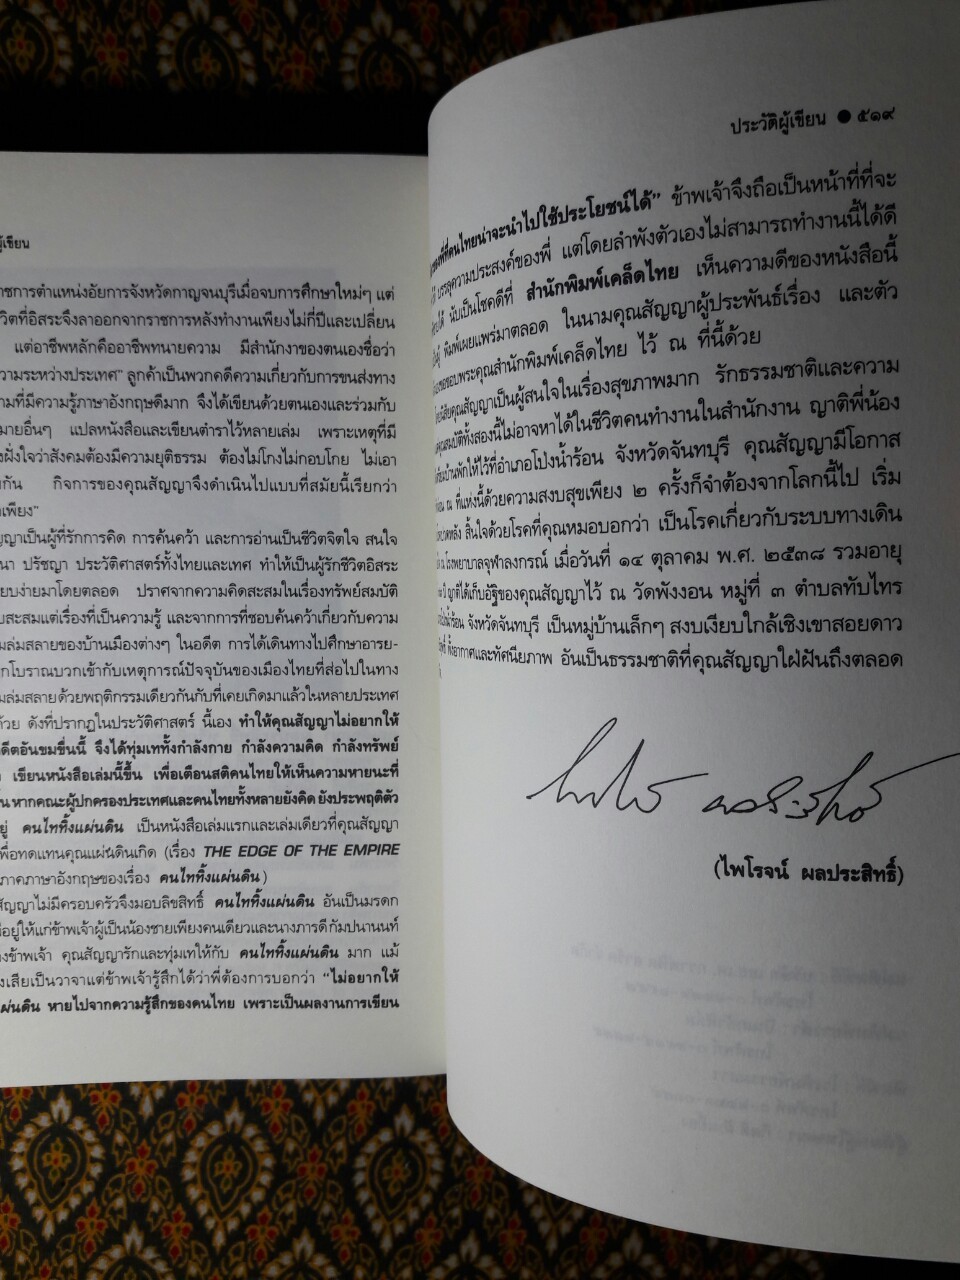 ผู้เขียน
ราชการตำแหน่งอัยการจังหวัดกาญจนบุรีเมื่อจบการศึกษาใหม่ๆ แต่
ชีวิตที่อิสระจึงลาออกจากราชการหลังทำงานเพียงไม่กี่ปีและเปลี่ยน
แต่อาชีพหลักคืออาชีพทนายความ มีสำนักงาของตนเองชื่อว่า
ความระหว่างประเทศ" ลูกค้าเป็นพวกคดีความเกี่ยวกับการขนส่งทาง
ความที่มีความรู้ภาษาอังกฤษดีมาก จึงได้เขียนด้วยตนเองและร่วมกับ
แปลหนังสือและเขียนตำราไว้หลายเล่ม เพราะเหตุที่มี
ฝังใจว่าสังคมต้องมีความยุติธรรม ต้องไม่โกงไม่กอบโกย ไม่เอา
กัน กิจการของคุณสัญญาจึงดำเนินไปแบบที่สมัยนี้เรียกว่า
เพียง"
เป็นผู้ที่รักการคิด การค้นคว้า และการอ่านเป็นชีวิตจิตใจ สนใจ
ปรัชญา ประวัติศาสตร์ทั้งไทยและเทศ ทำให้เป็นผู้รักชีวิตอิสระ
เรียบง่ายมาโดยตลอด ปราศจากความคิดสะสมในเรื่องทรัพย์สมบัติ
สะสมแต่เรื่องที่เป็นความรู้ และจากการที่ชอบค้นคว้าเกี่ยวกับความ
ล่มสลายของบ้านเมืองต่างๆ ในอดีต การได้เดินทางไปศึกษาอารย-
โบราณบวกเข้ากับเหตุการณ์ปัจจุบันของเมืองไทยที่ส่อไปในทาง
ล่มสลายด้วยพฤติกรรมเดียวกันกับที่เคยเกิดมาแล้วในหลายประเทศ
ด้วย ดังที่ปรากฏในประวัติศาสตร์ นี้เอง ทำให้คุณสัญญาไม่อยากให้
อดีตอันขมขื่นนี้ จึงได้ทุ่มเททั้งกำลังกาย กำลังความคิด กำลังทรัพย์
เขียนหนังสือเล่มนี้ขึ้น เพื่อเตือนสติคนไทยให้เห็นความหายนะที่
หากคณะผู้ปกครองประเทศและคนไทยทั้งหลายยังคิด ยังประพฤติตัว
อยู่ คนไททิ้งแผ่นดิน เป็นหนังสือเล่มแรกและเล่มเดียวที่คุณสัญญา
เพื่อทดแทนคุณแผ่นดินเกิด (เรื่อง THE EDGE OF THE EMPIRE
ภาคภาษาอังกฤษของเรื่อง คนไททิ้งแผ่นดิน)
สัญญาไม่มีครอบครัวจึงมอบลิขสิทธิ์ คนไททิ้งแผ่นดิน อันเป็นมรดก
อยู่ให้แก่ข้าพเจ้าผู้เป็นน้องชายเพียงคนเดียวและนางภารดี กัมปนานนท์
ข้าพเจ้า คุณสัญญารักและทุ่มเทให้กับ คนไททิ้งแผ่นดิน มาก แม้
เสียเป็นวาจาแต่ข้าพเจ้ารู้สึกได้ว่าพี่ต้องการบอกว่า "ไม่อยากให้
แผ่นดิน หายไปจากความรู้สึกของคนไทย เพราะเป็นผลงานการเขียน
ประวัติผู้เขียน ● ๕๑๙
ที่คนไทยน่าจะนำไปใช้ประโยชน์ได้" ข้าพเจ้าจึงถือเป็นหน้าที่ที่จะ
บรรลุความประสงค์ของพี่ แต่โดยลำพังตัวเองไม่สามารถทำงานนี้ได้ดี
ได้ นับเป็นโชคดีที่ สำนักพิมพ์เคล็ดไทย เห็นความดีของหนังสือนี้
พิมพ์เผยแพร่มาตลอด ในนามคุณสัญญาผู้ประพันธ์เรื่อง และตัว
ขอขอบพระคุณสำนักพิมพ์เคล็ดไทย ไว้ ณ ที่นี้ด้วย
คุณสัญญาเป็นผู้สนใจในเรื่องสุขภาพมาก รักธรรมชาติและความ
คุณสมบัติทั้งสองนี้ไม่อาจหาได้ในชีวิตคนทำงานในสำนักงาน ญาติพี่น้อง
บ้านพักให้ไว้ที่อำเภอโป่งน้ำร้อน จังหวัดจันทบุรี คุณสัญญามีโอกาส
ณ ที่แห่งนี้ด้วยความสงบสุขเพียง ๒ ครั้งก็จำต้องจากโลกนี้ไป เริ่ม
สิ้นใจด้วยโรคที่คุณหมอบอกว่า เป็นโรคเกี่ยวกับระบบทางเดิน
โรงพยาบาลจุฬาลงกรณ์ เมื่อวันที่ ๑๔ ตุลาคม พ.ศ. ๒๕๓๘ รวมอายุ
ปี ญาติได้เก็บอัฐิของคุณสัญญาไว้ ณ วัดพังงอน หมู่ที่ ๓ ตำบลทับไทร
จังหวัดจันทบุรี เป็นหมู่บ้านเล็กๆ สงบเงียบใกล้เชิงเขาสอยดาว
ทั้งอากาศและทัศนียภาพ อันเป็นธรรมชาติที่คุณสัญญาใฝ่ฝันถึงตลอด
(ไพโรจน์ ผลประสิทธิ์)